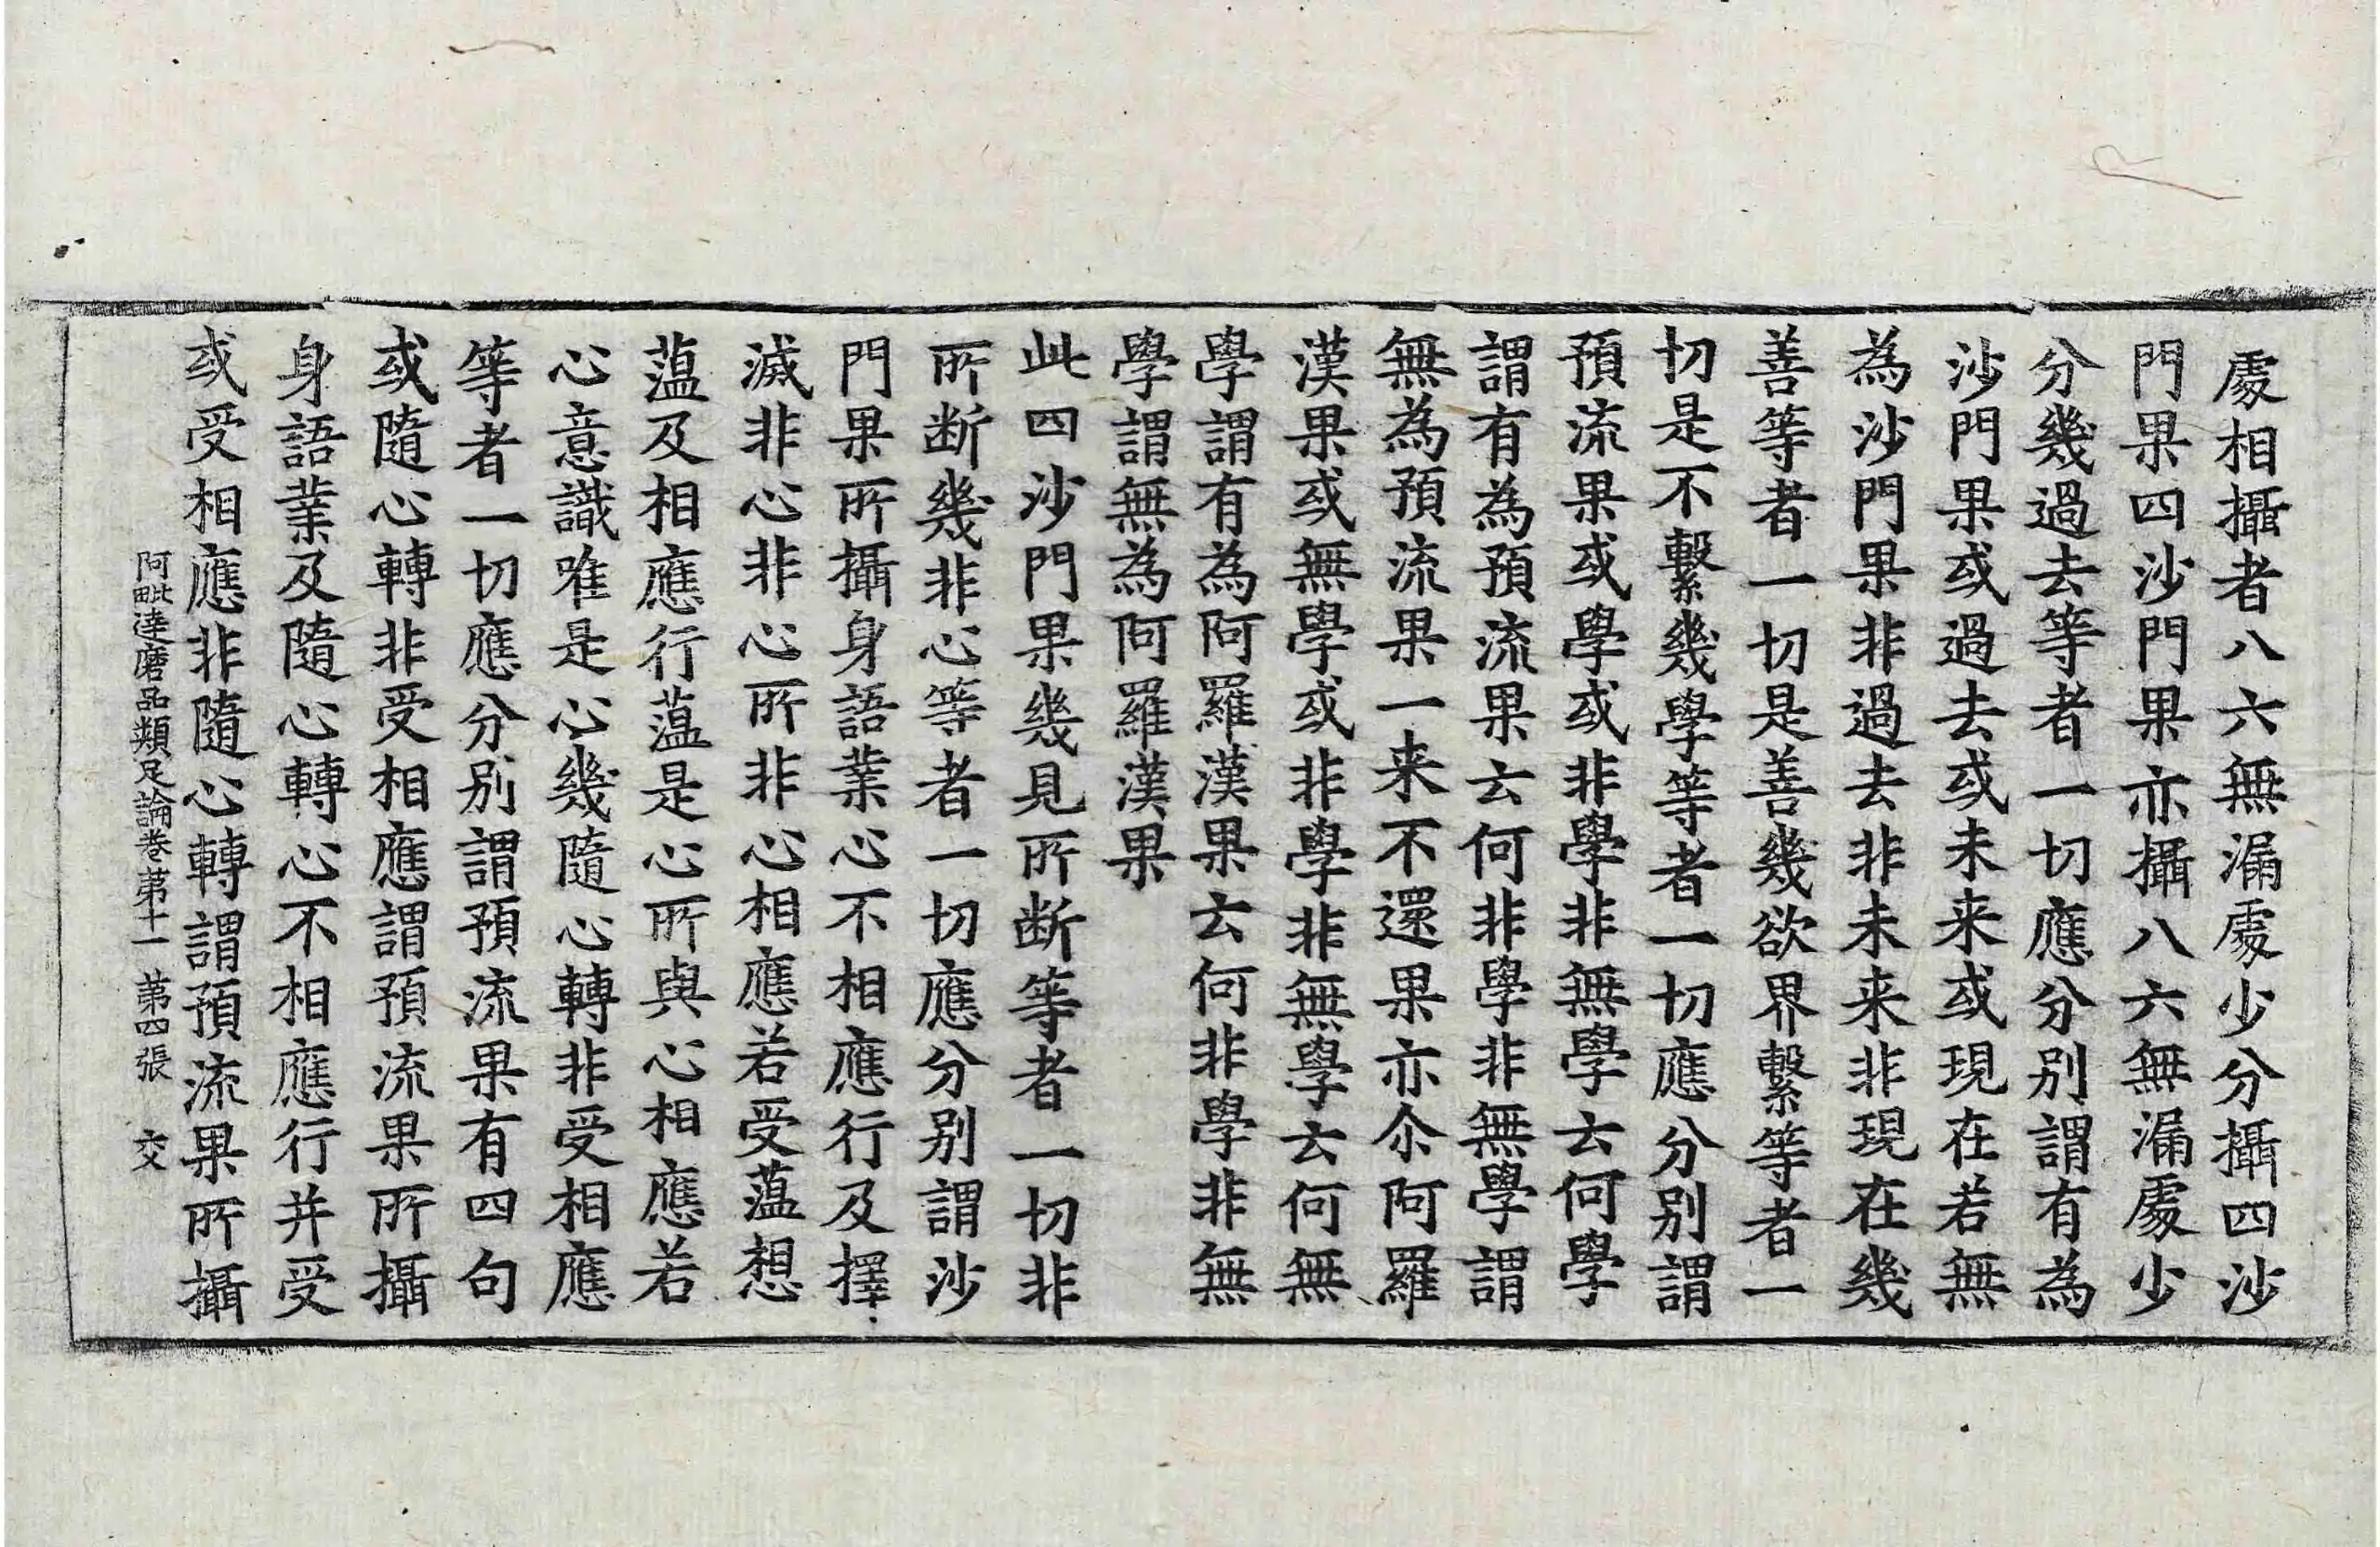 處相攝者八六無漏處少分攝四沙
門果四沙門果亦攝八六無漏處少
分幾過去等者一切應分別謂有為
沙門果或過去或未来或現在若無
為沙門果非過去非未来非現在幾
善等者一切是善幾欲界繫等者一
切是不繫幾學等者一切應分別謂
預流果或學或非學非無學云何學
謂有為預流果云何非學非無學謂
無為預流果一来不還果亦尒阿羅
漢果或無學或非學非無學云何無
學謂有為阿羅漢果云何非學非無
學謂無為阿羅漢果
此四沙門果幾見所断等者一切非
所断幾非心等者一切應分別謂沙
門果所攝身語業心不相應行及擇
滅非心非心所非心相應若受蕰想
蕰及相應行蕰是心所與心相應若
心意識唯是心幾隨心轉非受相應
等者一切應分別謂預流果有四句
或隨心轉非受相應謂預流果所攝
身語業及隨心轉心不相應行并受
或受相應非隨心轉謂預流果所攝
阿毗達磨品類足論卷苐十一 苐四張 交